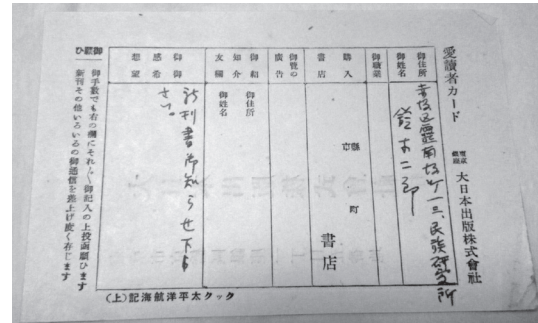 愛讀者カード
東京 銀座 大日本出版株式會社
御住所
御姓名
赤坂区靈南坂町一三、民族研究所
鈴木二郎
御職業
購入書店
縣 市 町 書店
御覽の廣告
御知友紹介欄
御住所
御姓名
御感想
御希望
新刊書御知らせ下さい。
御願ひ
御手數でも右の欄にそれ〲御記入の上投函願ひます
新刊その他いろいろの御通信を差上げ度く存じます
クック太平洋航海記(上)